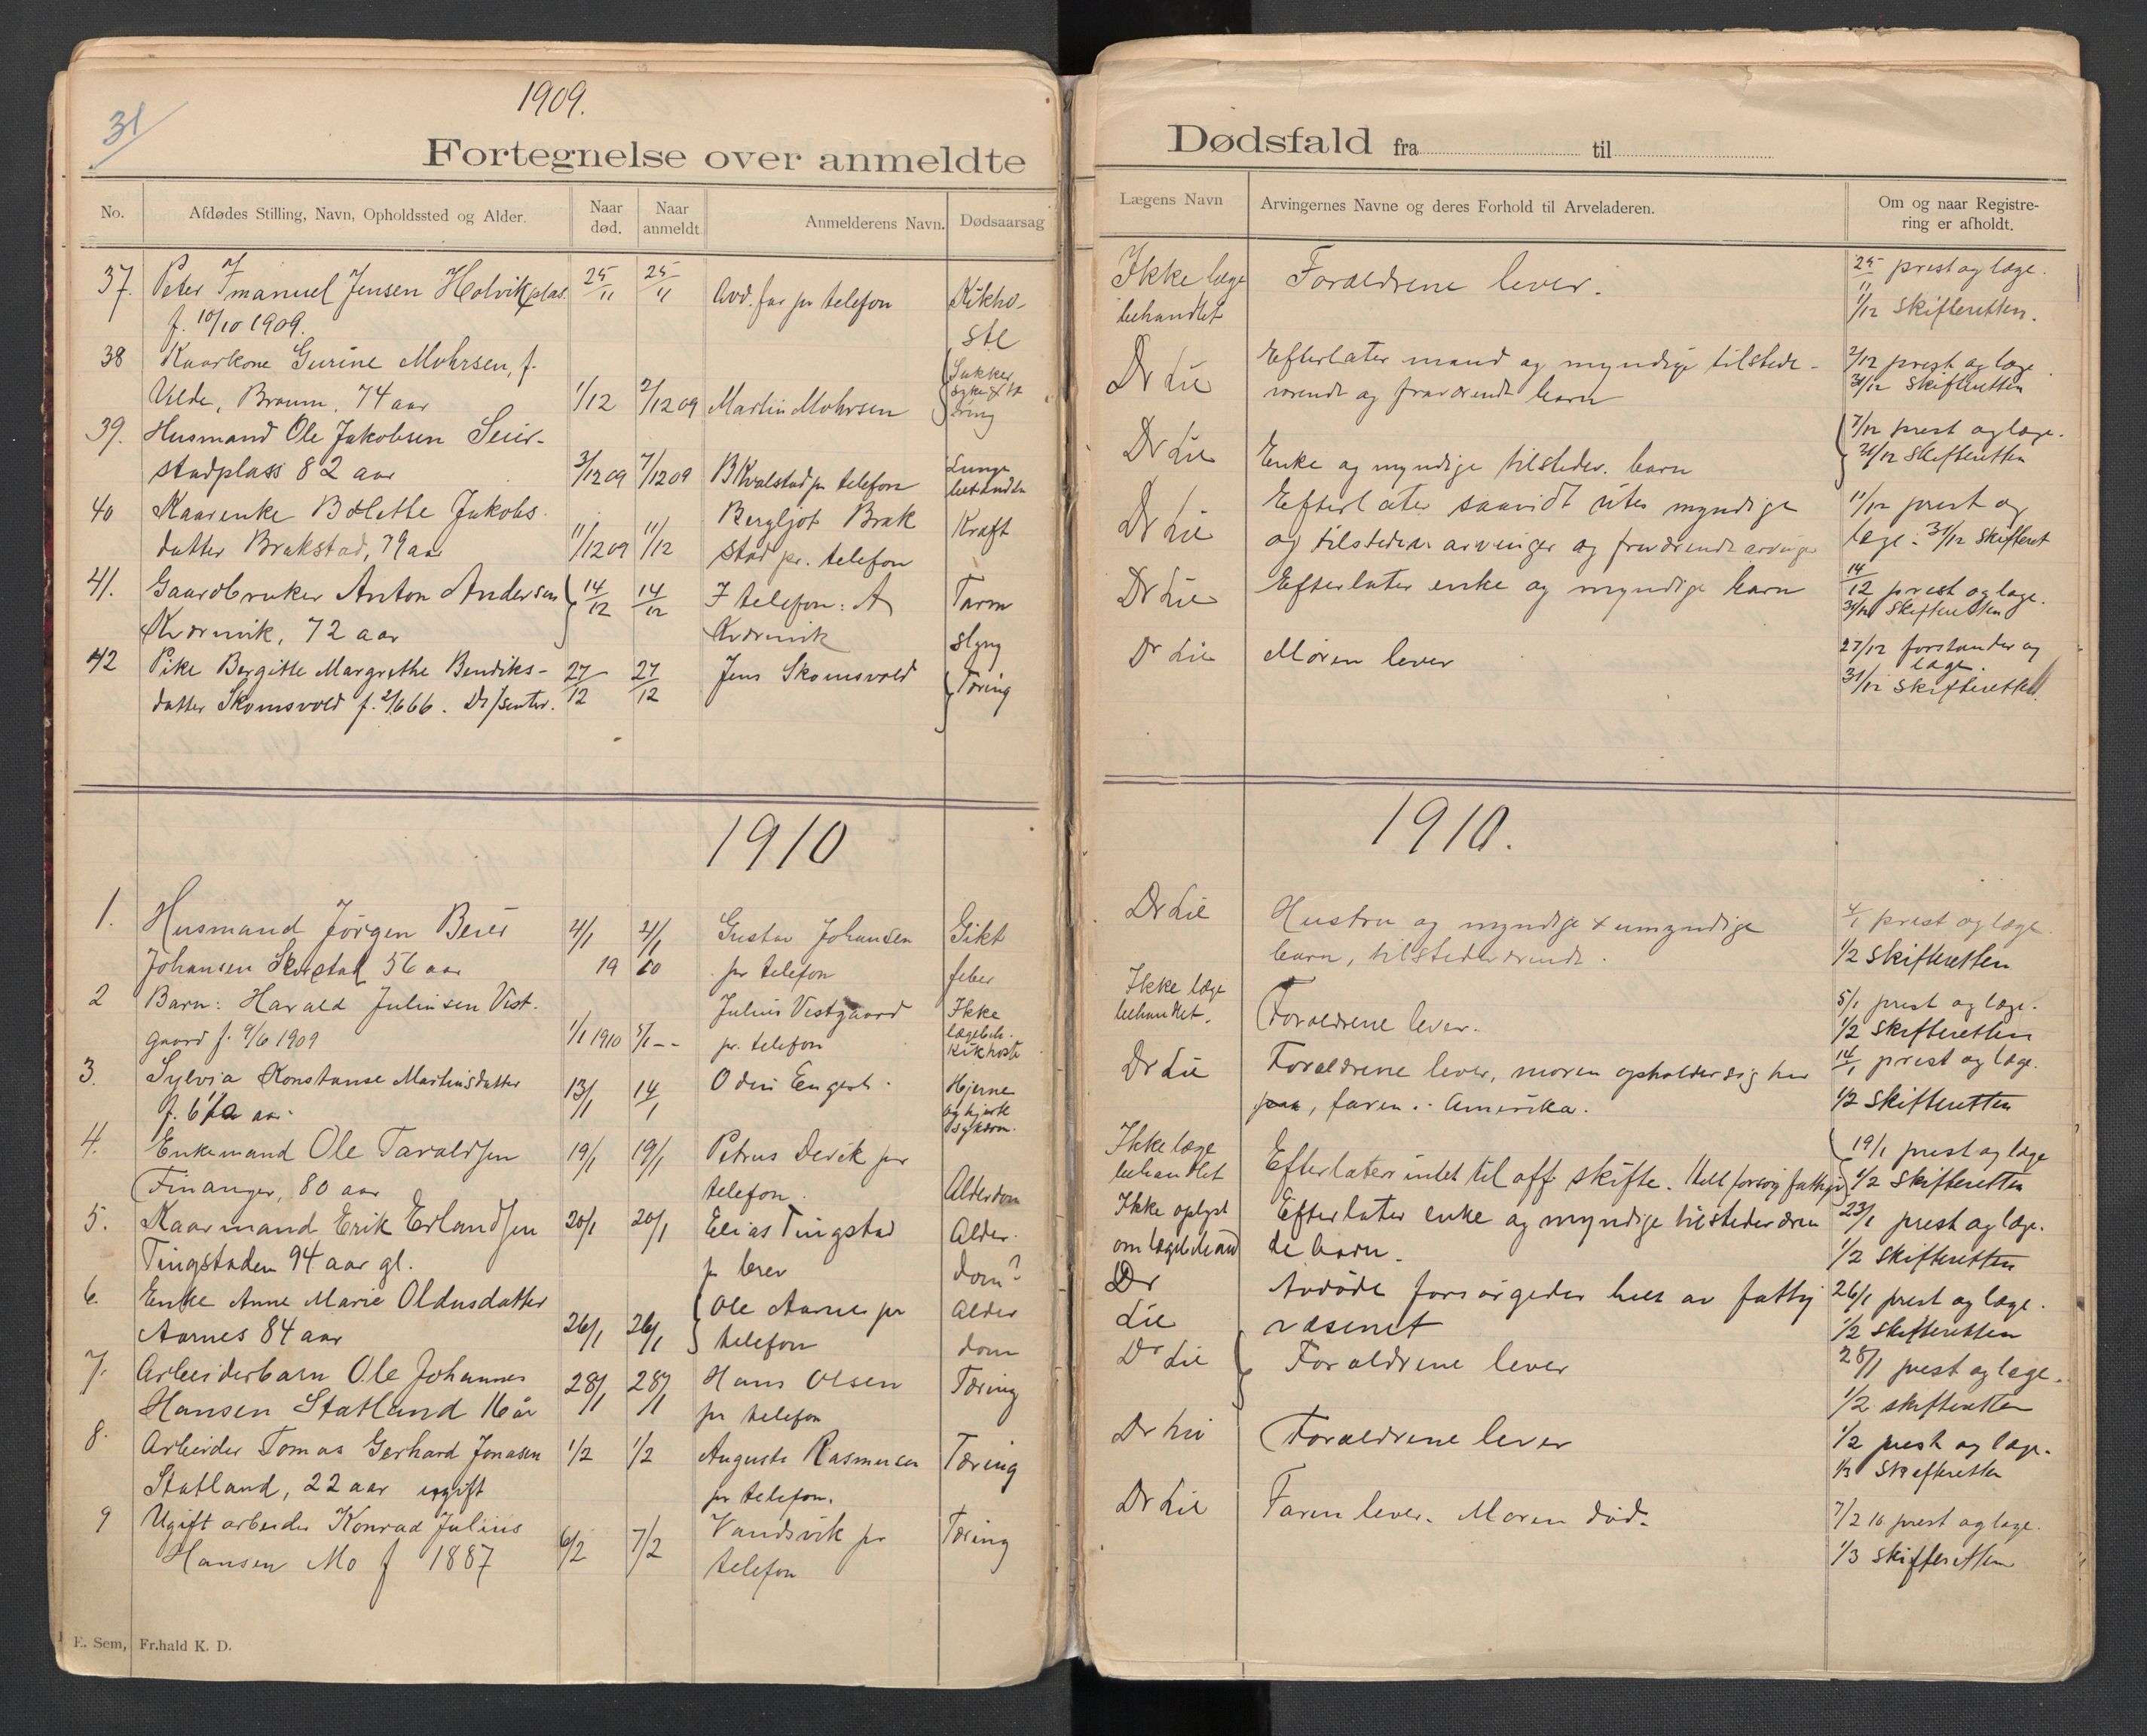 1909.
31
Fortegnelse over anmeldte
No.
Afdødes Stilling, Navn, Opholdssted og Alder.
Naar død.
Naar anmeldt
Anmelderens Navn.
Dødsaarsag
37. Peter Imanuel Jensen Holvikplas 25/11 25/11 Avd. far pr telefon Kikho-
f. 10/10 1909. ste
38 Kaarkone Gurine Mohrsen, f. Sukker
Utlde, Braum, 74 aar 1/12 2/12 09 Martin Mohrsen syke & tæ
ring
39. Husmand Ole Jakobsen Seier-
stadplass 82 aar 3/12 09 7/12 09 B Kvalstad pr telefon Lunge
40 Kaarenke Bolette Jakobs Bergljot Brak Kraft
datter Brakstad, 79 aar 11/12 09 11/12 stad pr. telefon
41. Gaardbruker Anton Andersen 14/12 14/12 I telefon: A Tarm
Kværnvik, 72 aar Kværnvik slyng
42 Pike Bergitte Margrethe Bendiks- 27/12 27/12 Jens Skomsvold Tæring
datter Skomsvold f. 2/6 66.
1910
1. Husmand Jörgen Beier 4/1 4/1 Gustav Johansen Gikt
Johansen Seierstad 56 aar 19 10 pr telefon feber
2 Barn: Harald Juliusen Vest- Julius Vestgaard Ikke
gaard f. 9/6 1909 1/1 1910 5/1 -- pr. telefon lægebeh.
Kikhoste
3. Sylvia Konstanse Martinsdatter 13/1 14/1 Odin Engeset Hjerne
f. 6 1/2 aar og hjerte
sykdom.
4. Enkemand Ole Taraldsen 19/1 19/1 Petrus Devik pr
Finanger, 80 aar telefon. Alderdom
5. Kaarmand Erik Erlandsen 20/1 20/1 Elias Tingstad Alder-
Tingstaden 94 aar gl. pr brev dom?
6. Enke Anne Marie Oldusdatter Ole Aarnes pr Alder
Aarnes 84 aar 26/1 26/1 telefon dom
7. Arbeiderbarn Ole Johannes 28/1 28/1 Hans Olsen Tæring
Hansen Statland 16 år pr telefon
8. Arbeider Tomas Gerhard Jonasen 1/2 1/2 Auguste Rasmusen Tæring
Statland, 22 aar ugift pr telefon.
9 Ugift arbeider Konrad Julius 6/2 7/2 Vandsvik pr Tæring
Hansen Mo f 1887 telefon
E. Sem, Fr.hald K. D.
Dødsfald fra til
Lægens Navn
Arvingernes Navne og deres Forhold til Arveladeren.
Om og naar Registre-
ring er afholdt.
Ikke læge Forældrene lever. 25/11 prest og læge.
behandlet 1/12 skifteretten.
Dr Lie Efterlater mand og myndige tilstede- 2/12 prest og læge
værende og fraværende barn 31/12 skifteretten
Dr Lie 7/12 prest og læge.
Enke og myndige tilstedev. barn 31/12 skifteretten
Dr Lie Efterlater saavidt vites myndige 11/12 prest og
og tilstedevær arvinger og fraværende arvinger læge. 31/12 skifteret
Dr Lie Efterlater enke og myndige barn 14/12 prest og læge.
31/12 skifteretten
Dr Lie Moren lever 27/12 forstander og
læge.
31/12 skifteretten
1910.
Dr Lie Hustru og myndige & umyndige 4/1 prest og læge.
barn, tilstedeværende. 1/2 skifteretten
Ikke læge 5/1 prest og læge.
behandlet. Forældrene lever. 1/2 skifteretten
Dr Lie Forældrene lever, moren opholder sig her 14/1 prest og læge.
paa, faren i Amerika. 1/2 skifteretten
Ikke læge 19/1 prest og læge
behandlet Efterlater intet til off. skifte. Helt forsørg fattigv. 1/2 skifteretten
Ikke oplyst Efterlater enke og myndige tilstedeværen 23/1 prest og læge.
om lægebehand de barn. 1/2 skifteretten
Dr Avdöde forsörgedes helt av fattig 26/1 prest og læge.
Lie væsenet 1/2 skifteretten
Dr Lie Forældrene lever 28/1 prest og læge.
1/2 skifteretten
Dr Lie Forældrene lever 1/2 prest og læge.
1/3 skifteretten
Dr Lie Faren lever. Moren död. 7/2 10 prest og læge.
1/3 skifteretten